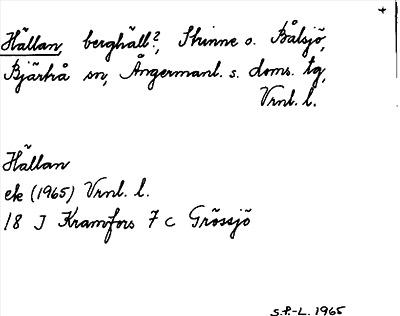 Hällan, berghäll?, Skinne o. Bålsjö,
Bjärtrå sn, Ångermanl. s. doms. tg,
Vrnl. l.
Hällan
ek (1965) Vrnl. l.
18 J Kramfors 7 c Grössjö
S.P.-L. 1965